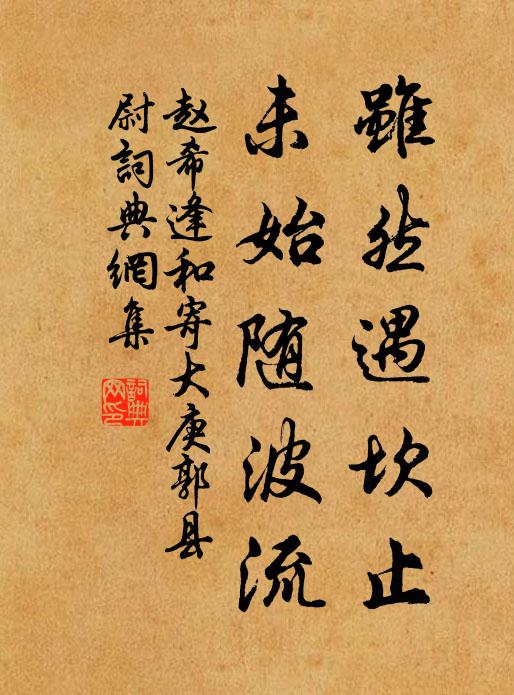 雖然遇坎止
未始随波流
赵希逢和寄大庾郭县
尉詞典網集
詞典
网印